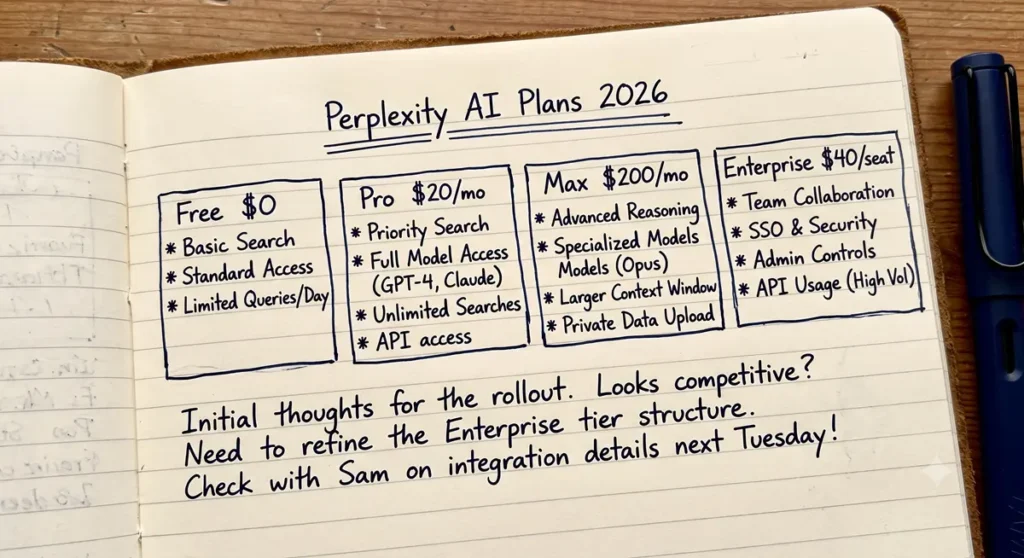 Perplexity AI Plans 2026
Free $0
* Basic Search
* Standard Access
* Limited Queries/Day
Pro $20/mo
* Priority Search
* Full Model Access
(GPT-4, Claude)
* Unlimited Searches
* API access
Max $200/mo
* Advanced Reasoning
* Specialized Models
Models (Opus)
* Larger Context Window
* Private Data Upload
Enterprise $40/seat
* Team Collaboration
* SSO & Security
* Admin Controls
* API Usage (High Vol)
Initial thoughts for the rollout. Looks competitive?
Need to refine the Enterprise tier structure.
Check with Sam on integration details next Tuesday!